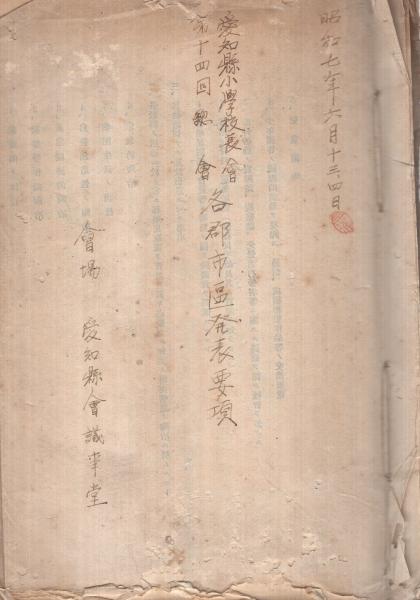 昭和七年六月十三、四日
愛知縣小學校長會
第十四回 總會
各郡市區発表要項
會場 愛知縣會議事堂